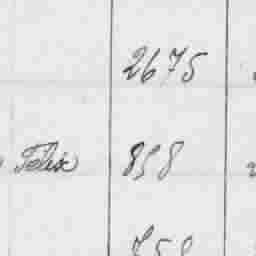 2675
Felix 858